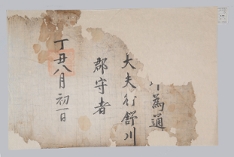 爲通
大夫行舒川
郡守者
丁丑八月初一日